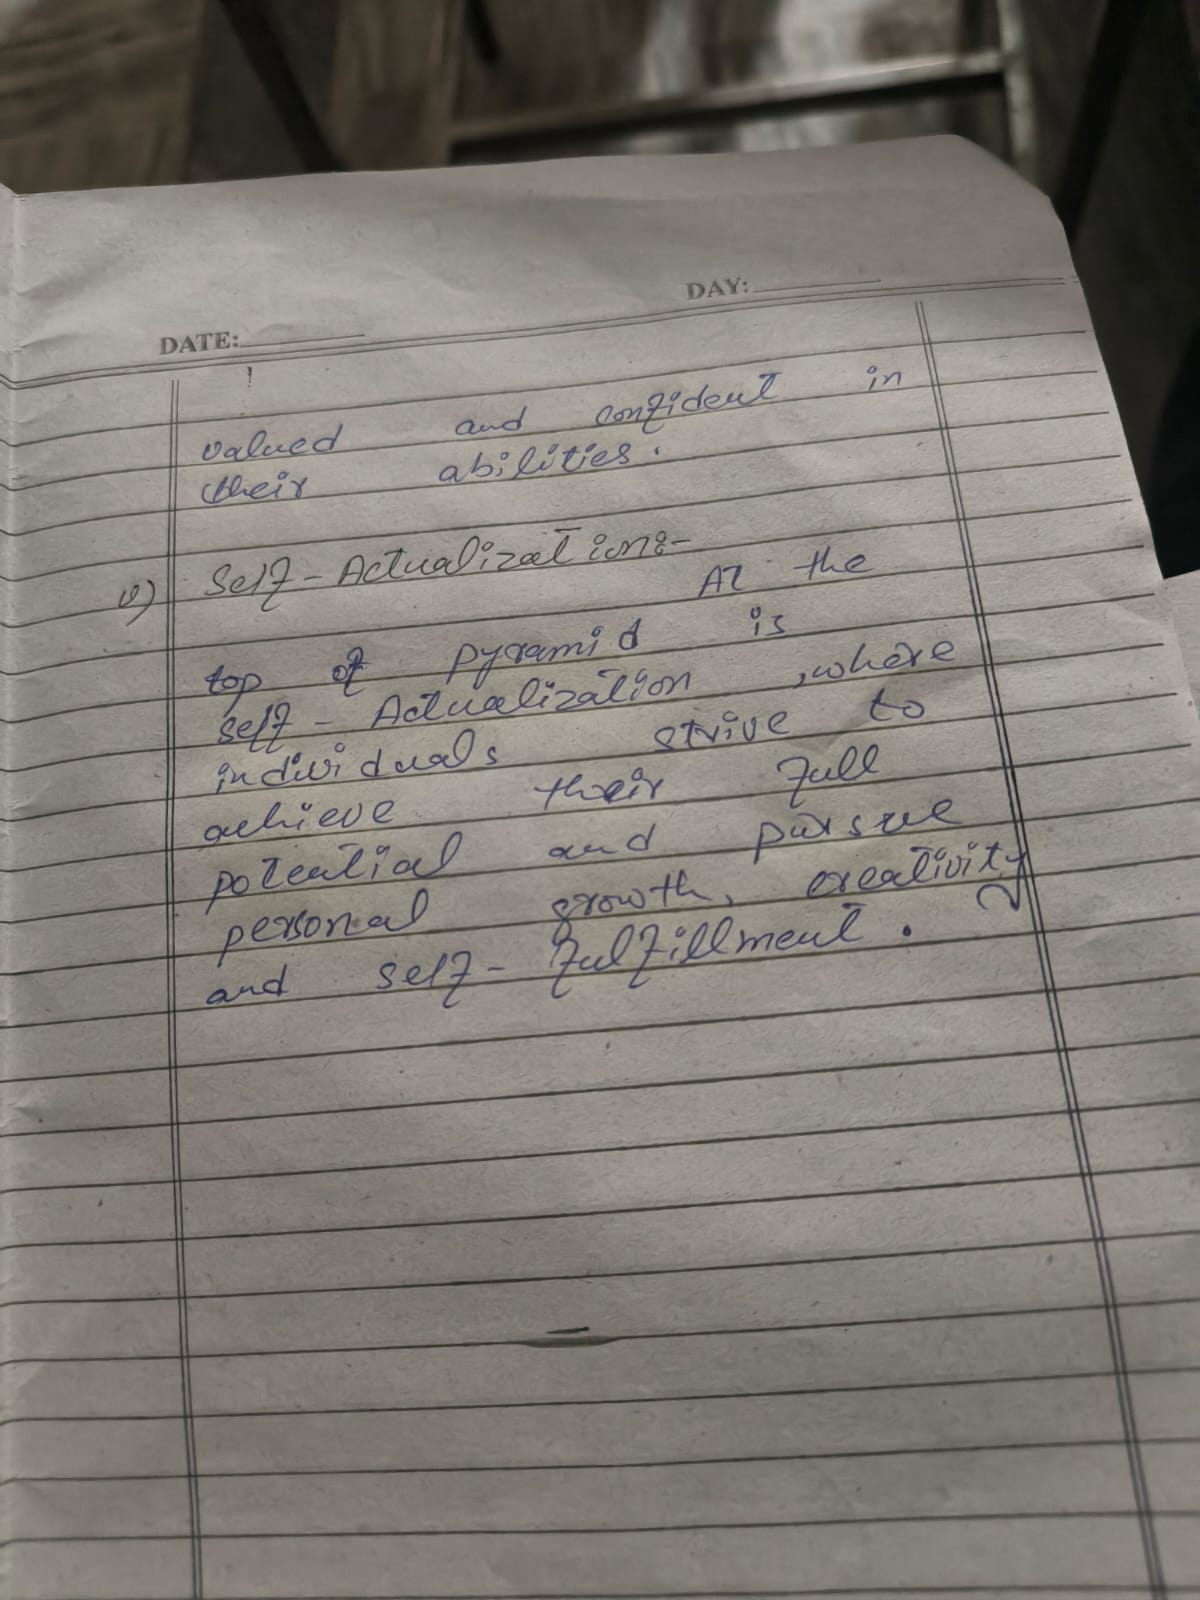 DATE:
DAY:
valued and confident in
their abilities.
v) Self-Actualization:-
At the
top of pyramid is
self-Actualization, where
individuals strive to
achieve their full
potential and pursue
personal growth, creativity
and self-fulfillment.